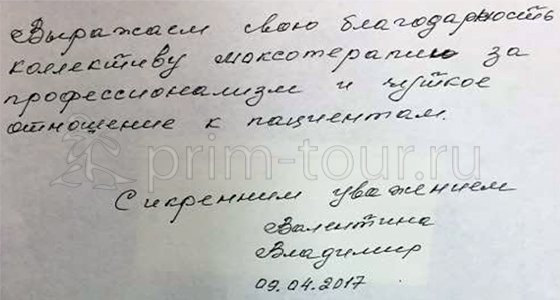 Выражаем свою благодарность
коллективу моксотерапию за
профессионализм и чуткое
отношение к пациентам.
prim-tour.ru
С икренним уважением
Валентина
Владимир
09.04.2017